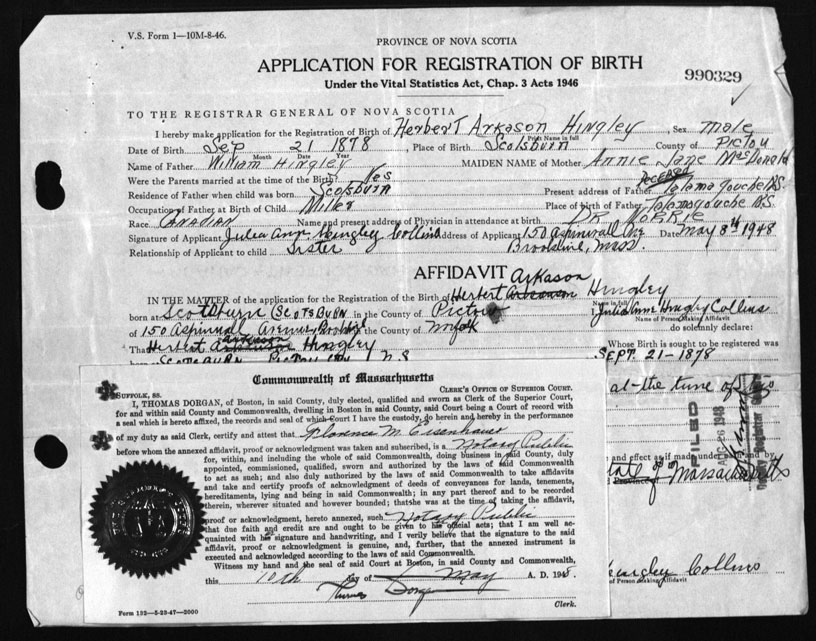 V.S. Form 1—10M-8-46.
PROVINCE OF NOVA SCOTIA
APPLICATION FOR REGISTRATION OF BIRTH
990329
Under the Vital Statistics Act, Chap. 3 Acts 1946
TO THE REGISTRAR GENERAL OF NOVA SCOTIA
I hereby make application for the Registration of Birth of Herbert Arkason Hingley, Sex Male
Print Name in full
Date of Birth Sep 21 1878, Place of Birth Scotsburn County of Pictou
Month Date Year
Name of Father William Hingley MAIDEN NAME of Mother Annie Jane MacDonald
Were the Parents married at the time of the Birth? Yes DECEASED
Residence of Father when child was born Scotsburn Present address of Father Tatamagouche N.S.
Occupation of Father at Birth of Child Miller Place of birth of Father Tatamagouche N.S.
Race Canadian Name and present address of Physician in attendance at birth DR
Signature of Applicant Julia Ann Hingley Collins Address of Applicant 150 Aspinwall Ave Date May 8th 1948
Relationship of Applicant to child Sister Brookline, Mass.
AFFIDAVIT Arkason
IN THE MATTER of the application for the Registration of the Birth of Herbert Hingley
Name in full
born at Scotsburn (SCOTSBURN in the County of Pictou I, Julia Ann Hingley Collins
Name of Person Making Affidavit
of 150 Aspinwall Avenue, the County of Norfolk do solemnly declare:
Arkason
That Herbert Hingley Whose Birth is sought to be registered was
SCOTSBURN N.S. SEPT. 21-1878
at the time of
FILED
1948
and effect as if made under
State of Massachusetts
Hingley Collins
of Person Making Affidavit
Commonwealth of Massachusetts
SUFFOLK, SS. CLERK'S OFFICE OF SUPERIOR COURT.
I, THOMAS DORGAN, of Boston, in said County, duly elected, qualified and sworn as Clerk of the Superior Court,
for and within said County and Commonwealth, dwelling in Boston in said County, said Court being a Court of record with
a seal which is hereto affixed, the records and seal of which Court I have the custody, do hereby and herein, in the performance
of my duty as said Clerk, certify and attest that Florence M. Eisenhauer
before whom the annexed affidavit, proof or acknowledgment was taken and subscribed, is a Notary Public
for, within, and including the whole of said Commonwealth, doing business in said County, duly
appointed, commissioned, qualified, sworn and authorized by the laws of said Commonwealth
to act as such; and also duly authorized by the laws of said Commonwealth to take affidavits
and take and certify proofs of acknowledgment of deeds of conveyances for lands, tenements,
hereditaments, lying and being in said Commonwealth; in any part thereof and to be recorded
therein, wherever situated and however bounded; that she was at the time of taking the affidavit,
proof or acknowledgment, hereto annexed, such Notary Public
that due faith and credit are and ought to be given to his official acts; that I am well ac-
quainted with his signature and handwriting, and I verily believe that the signature to the said
affidavit, proof or acknowledgment is genuine, and, further, that the annexed instrument is
executed and acknowledged according to the laws of said Commonwealth.
Witness my hand and the seal of said Court at Boston, in said County and Commonwealth,
this 10th day of May A. D. 1948.
Thomas Dorgan
Clerk.
Form 132—5-23-47—2000